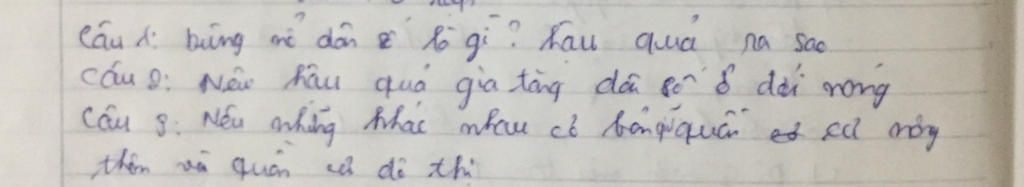 Câu 1: bùng nổ dân số là gì? hậu quả ra sao
Câu 2: Nêu hậu quả gia tăng dân số ở đới nóng
Câu 3: Nêu những khác nhau cơ bản quần cư nông
thôn và quần cư đô thị